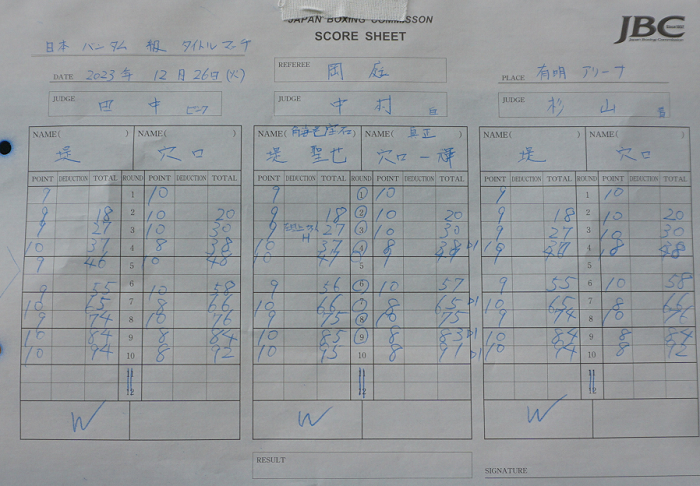 JAPAN BOXING COMMISSON
SCORE SHEET
JBC
日本 バンタム 級 タイトルマッチ
REFEREE 岡庭
DATE 2023年 12月26日(火)
PLACE 有明アリーナ
JUDGE 田中
JUDGE 中村
JUDGE 杉山
NAME( ) NAME( ) NAME(角海老宝石) NAME( 真正 ) NAME( ) NAME( )
堤 穴口 堤 聖也 穴口一輝 堤 穴口
POINT DEDUCTION TOTAL ROUND POINT DEDUCTION TOTAL POINT DEDUCTION TOTAL ROUND POINT DEDUCTION TOTAL POINT DEDUCTION TOTAL ROUND POINT DEDUCTION TOTAL
9 1 10 9 1 10 9 1 10
9 18 2 10 20 9 18 2 10 20 9 18 2 10 20
9 27 3 10 30 9 27 3 10 30 9 27 3 10 30
10 37 4 8 38 10 37 4 8 38 10 37 4 8 38
9 46 5 10 48 9 5 10 5
9 55 6 10 58 9 56 6 10 57 9 55 6 10 58
10 65 7 8 66 10 66 7 8 65 10 65 7 8 66
9 74 8 10 76 9 75 8 10 75 9 74 8 10 76
10 84 9 8 84 10 85 9 8 83 10 84 9 8 84
10 94 10 8 92 10 95 10 8 91 10 94 10 8 92
W W W
RESULT
SIGNATURE